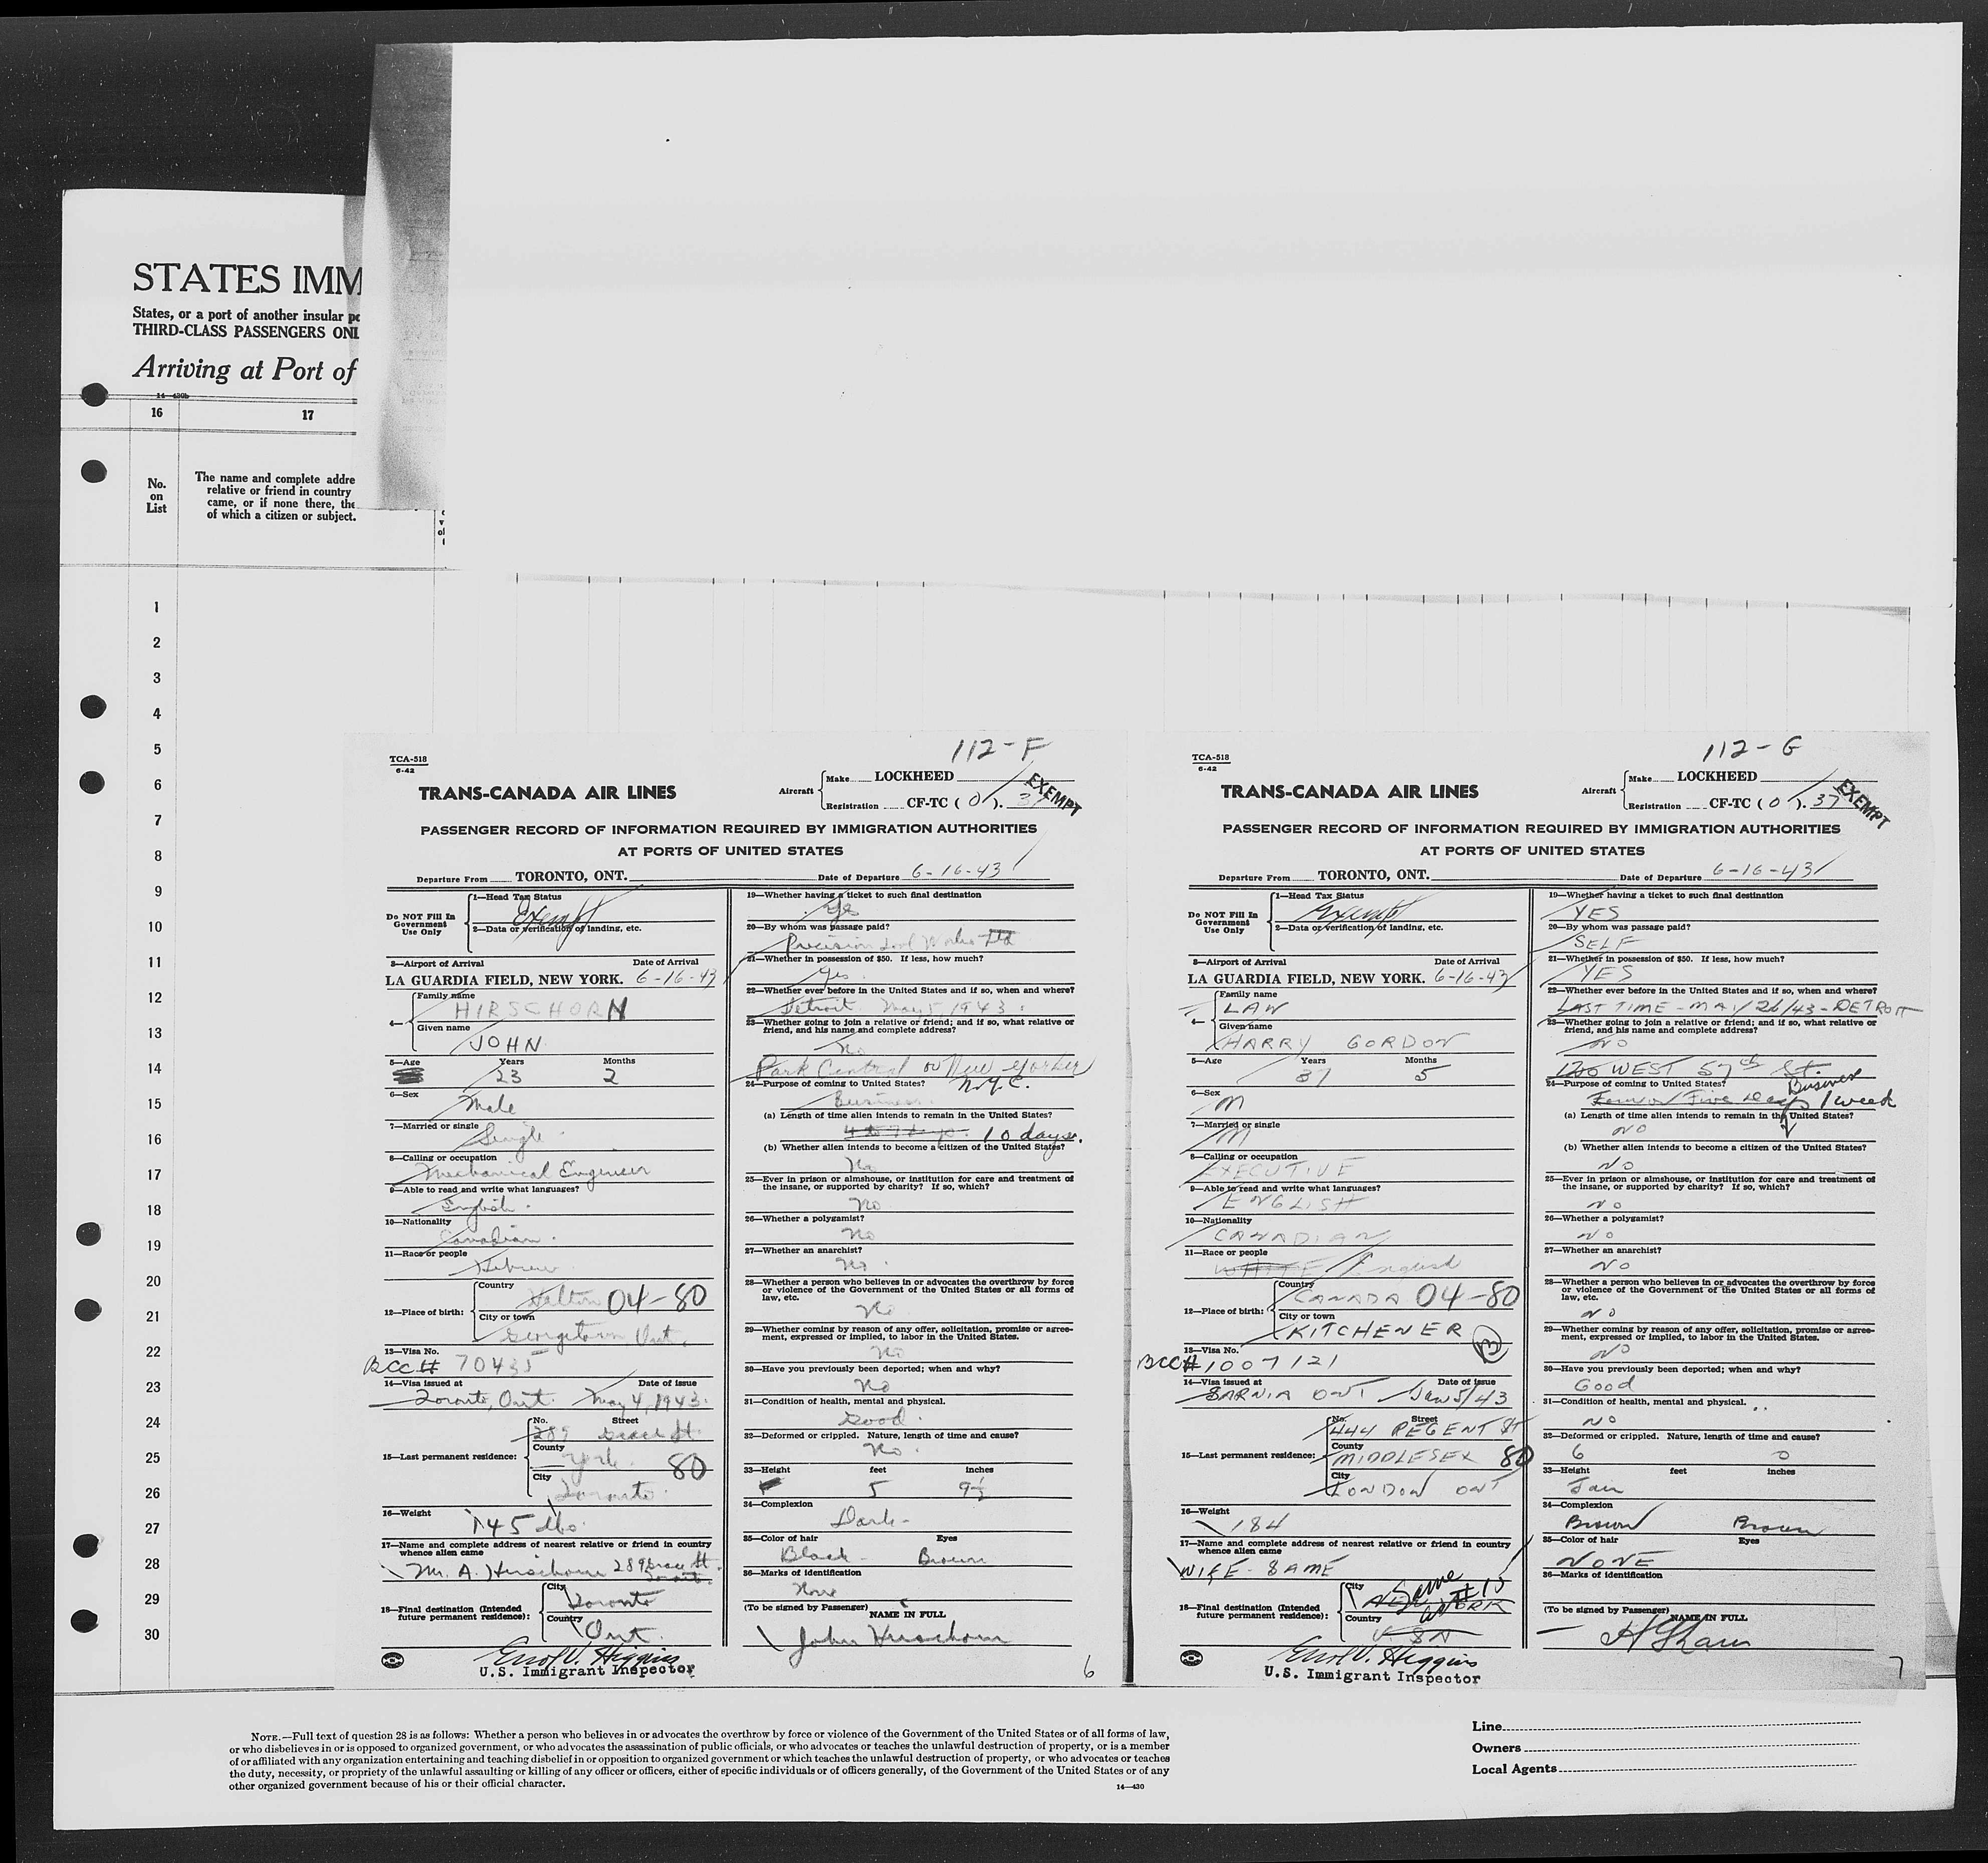 STATES IMM
States, or a port of another insular po
THIRD-CLASS PASSENGERS ONL
Arriving at Port of
14—430b
16 17
No. on List
The name and complete addre
relative or friend in country
came, or if none there, the
of which a citizen or subject.
1
2
3
4
5
6
7
8
9
10
11
12
13
14
15
16
17
18
19
20
21
22
23
24
25
26
27
28
29
30
112-F
TCA-518
6-42
TRANS-CANADA AIR LINES
Aircraft Make LOCKHEED
Registration CF-TC ( O ). 37
EXEMPT
PASSENGER RECORD OF INFORMATION REQUIRED BY IMMIGRATION AUTHORITIES
AT PORTS OF UNITED STATES
Departure From TORONTO, ONT. Date of Departure 6-16-43
Do NOT Fill In Government Use Only
1—Head Tax Status
Exempt
2—Data or verification of landing, etc.
3—Airport of Arrival Date of Arrival
LA GUARDIA FIELD, NEW YORK. 6-16-43
4— Family name
HIRSCHORN
Given name
JOHN
5—Age Years Months
23 2
6—Sex
Male
7—Married or single
Single
8—Calling or occupation
Mechanical Engineer
9—Able to read and write what languages?
English
10—Nationality
Canadian
11—Race or people
Hebrew
12—Place of birth: Country
Halton 04-80
City or town
Georgetown Ont.
13—Visa No.
BCC# 70435
14—Visa issued at Date of issue
Toronto, Ont. May 4, 1943.
15—Last permanent residence: No. Street
289 Grace St.
County
York 80
City
Toronto
16—Weight
145 lbs.
17—Name and complete address of nearest relative or friend in country
whence alien came
Mr. A. Hirschorn 289 Grace St. Toronto.
18—Final destination (Intended
future permanent residence): City
Toronto
Country
Ont.
Errol V. Higgins
U.S. Immigrant Inspector
19—Whether having a ticket to such final destination
Yes
20—By whom was passage paid?
Precision Tool Works Ltd
21—Whether in possession of $50. If less, how much?
Yes.
22—Whether ever before in the United States and if so, when and where?
Detroit May 5, 1943.
23—Whether going to join a relative or friend; and if so, what relative or
friend, and his name and complete address?
No
Park Central or New Yorker
24—Purpose of coming to United States? N.Y.C.
Business.
(a) Length of time alien intends to remain in the United States?
4 to 7 days. 10 days.
(b) Whether alien intends to become a citizen of the United States?
No
25—Ever in prison or almshouse, or institution for care and treatment of
the insane, or supported by charity? If so, which?
No
26—Whether a polygamist?
No
27—Whether an anarchist?
No.
28—Whether a person who believes in or advocates the overthrow by force
or violence of the Government of the United States or all forms of
law, etc.
No
29—Whether coming by reason of any offer, solicitation, promise or agree-
ment, expressed or implied, to labor in the United States.
No
30—Have you previously been deported; when and why?
No
31—Condition of health, mental and physical.
Good.
32—Deformed or crippled. Nature, length of time and cause?
No.
33—Height feet inches
5 9½
34—Complexion
Dark
35—Color of hair Eyes
Black Brown
36—Marks of identification
None
(To be signed by Passenger) NAME IN FULL
John Hirschorn
6
112-G
TCA-518
6-42
TRANS-CANADA AIR LINES
Aircraft Make LOCKHEED
Registration CF-TC ( O ). 37
EXEMPT
PASSENGER RECORD OF INFORMATION REQUIRED BY IMMIGRATION AUTHORITIES
AT PORTS OF UNITED STATES
Departure From TORONTO, ONT. Date of Departure 6-16-43
Do NOT Fill In Government Use Only
1—Head Tax Status
Exempt
2—Data or verification of landing, etc.
3—Airport of Arrival Date of Arrival
LA GUARDIA FIELD, NEW YORK. 6-16-43
4— Family name
LAW
Given name
HARRY GORDON
5—Age Years Months
37 5
6—Sex
M
7—Married or single
M
8—Calling or occupation
EXECUTIVE
9—Able to read and write what languages?
ENGLISH
10—Nationality
CANADIAN
11—Race or people
WHITE English
12—Place of birth: Country
CANADA 04-80
City or town
KITCHENER
13—Visa No.
BCC# 1007121
14—Visa issued at Date of issue
SARNIA ONT Jan 5/43
15—Last permanent residence: No. Street
444 REGENT ST
County
MIDDLESEX 80
City
LONDON ONT
16—Weight
184
17—Name and complete address of nearest relative or friend in country
whence alien came
WIFE - SAME
18—Final destination (Intended
future permanent residence): City
NEW YORK Same as #15
Country
Errol V. Higgins
U.S. Immigrant Inspector
19—Whether having a ticket to such final destination
YES
20—By whom was passage paid?
SELF
21—Whether in possession of $50. If less, how much?
YES
22—Whether ever before in the United States and if so, when and where?
LAST TIME - MAY 26/43 - DETROIT
23—Whether going to join a relative or friend; and if so, what relative or
friend, and his name and complete address?
NO
WEST 57th St.
24—Purpose of coming to United States? Business
Four or Five Days 1 week
(a) Length of time alien intends to remain in the United States?
NO
(b) Whether alien intends to become a citizen of the United States?
NO
25—Ever in prison or almshouse, or institution for care and treatment of
the insane, or supported by charity? If so, which?
NO
26—Whether a polygamist?
NO
27—Whether an anarchist?
NO
28—Whether a person who believes in or advocates the overthrow by force
or violence of the Government of the United States or all forms of
law, etc.
NO
29—Whether coming by reason of any offer, solicitation, promise or agree-
ment, expressed or implied, to labor in the United States.
NO
30—Have you previously been deported; when and why?
Good
31—Condition of health, mental and physical.
NO
32—Deformed or crippled. Nature, length of time and cause?
6 0
33—Height feet inches
Fair
34—Complexion
Brown Brown
35—Color of hair Eyes
NONE
36—Marks of identification
(To be signed by Passenger) NAME IN FULL
H G Law
7
NOTE.—Full text of question 28 is as follows: Whether a person who believes in or advocates the overthrow by force or violence of the Government of the United States or of all forms of law,
or who disbelieves in or is opposed to organized government, or who advocates the assassination of public officials, or who advocates or teaches the unlawful destruction of property, or is a member
of or affiliated with any organization entertaining and teaching disbelief in or opposition to organized government or which teaches the unlawful destruction of property, or who advocates or teaches
the duty, necessity, or propriety of the unlawful assaulting or killing of any officer or officers, either of specific individuals or of officers generally, of the Government of the United States or of any
other organized government because of his or their official character.
14—430
Line
Owners
Local Agents